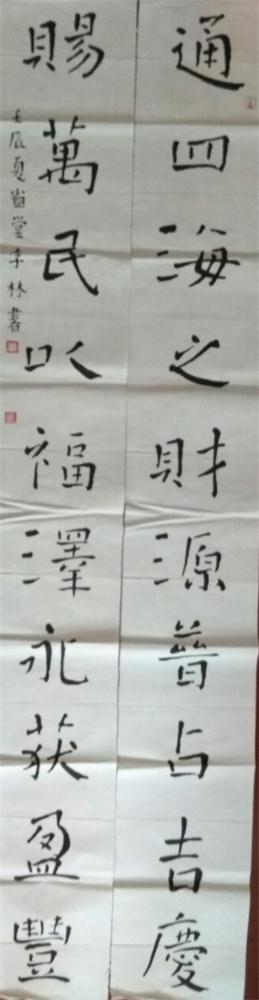 通四海之財源普占吉慶
賜萬民以福澤永获盈豐
壬辰夏 堂李林書